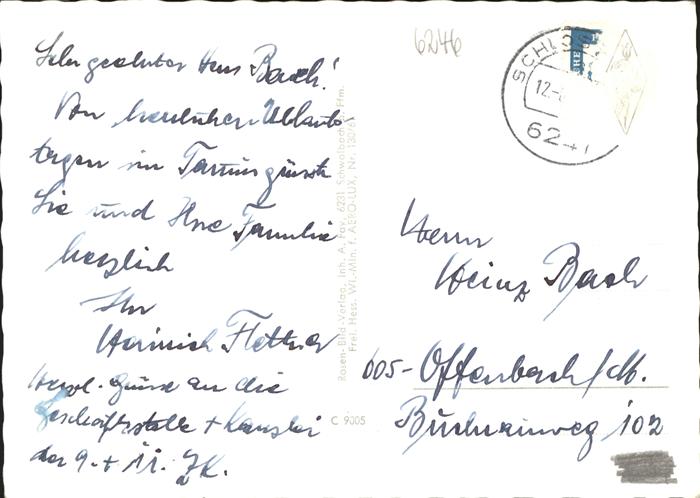 6246
SCHLOSS
12.
624
Sehr geehrter Herr Bach!
Von herrlichen Urlaubs-
tagen im Taunus grüsst
Sie und Ihre Familie
herzlich
Ihr
Heinrich Flettner
Herzl. Grüsse an die
Geschäftsstelle + Kanzlei
der 9. + 11. ZK.
Rosen-Bild-Verlag, Inh. A. 6231 Schwalbach b. Ffm.
Frei. Hess. Wi.-Min. f. AERO-LUX, Nr.
C 9005
Herrn
Heinz Bach
605-Offenbach/M.
Buchrainweg 102